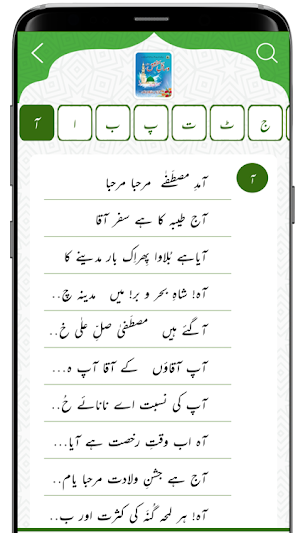 آ ا ب پ ت ٹ ج
آ
آمدِ مصطَفٰے مرحبا مرحبا
آج طیبہ کا ہے سفر آقا
آیا ہے بُلاوا پھر اِک بار مدینے کا
آہ! شاہِ بحر و بر! میں مدینہ چ...
آ گئے ہیں مصطَفیٰ صلِّ علٰی خ...
آپ آقاؤں کے آقا آپ ہ...
آپ کی نسبت اے نانائے حُ...
آہ اب وقتِ رخصت ہے آیا...
آج ہے جشنِ ولادت مرحبا یام...
آہ! ہر لمحہ گُنَہ کی کثرت اور ب...